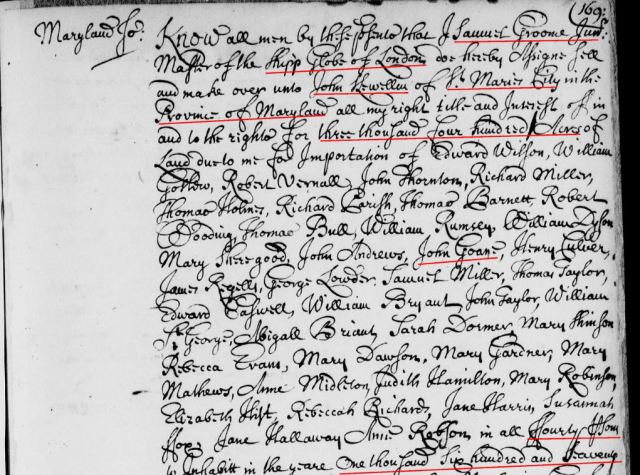 (169:
Maryland ss: Know all men by these presents that I Samuel Groome Junr:
Master of the Shipp Globe of London doe hereby Assigne sell
and make over unto John Lewellin of St. Maries City in the
Province of Maryland all my right title and Interest of in
and to the rights for three thousand four hundred Acres of
Land due to me for Importation of Edward Wilson, William
Robert Vernall, John Thornton, Richard Miller,
Thomas Holmes, Richard Parish, Thomas Barnett, Robert
Wooding, Thomas Bull, William Rumsey, William Dyson
Mary Theregood, John Andrews, John Goane, Henry Culver,
James George Lowder, Samuel Miller, Thomas Taylor,
Edward William Bryant John Taylor, William
St. George, Abigall Briant, Sarah Dormer, Mary
Rebecca Evans, Mary Dawson, Mary Gardner, Mary
Mathews, Anne Midleton, Judith Hamilton, Mary Robinson,
Elizabeth Rebeccah Richards, Jane Harris, Susannah
Fox, Jane Hallaway Anne Robson in all ffourty
Inhabitt in the yeare One thousand Six hundred and Seaventy